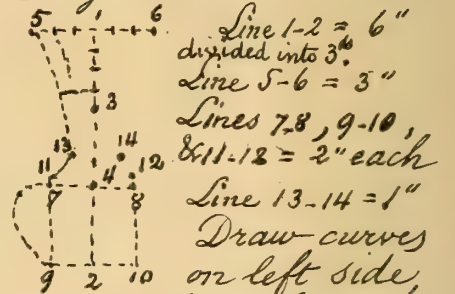 5 1 6
3
13 14
11 12
7 4 8
9 2 10
Line 1-2 = 6"
divided into 3ds.
Line 5-6 = 3"
Lines 7-8, 9-10,
& 11-12 = 2" each
Line 13-14 = 1"
Draw curves
on left side,